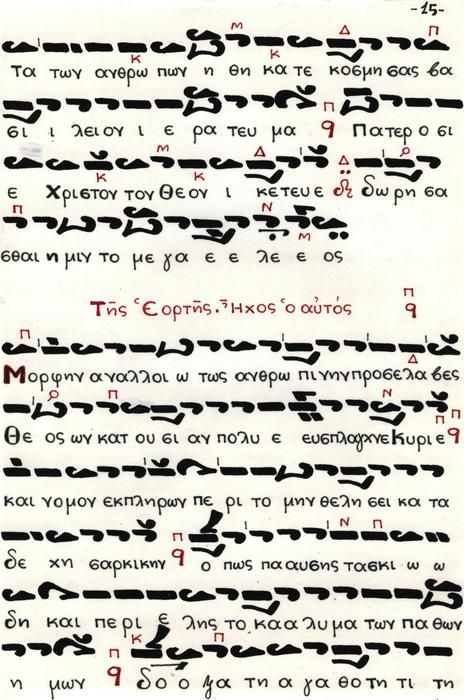 -15-
Μ Δ Π
Κ Κ
Τα των ανθρω πων η θη κα τε κοσμη σας βα
σι ι λειον ι ε ρα τευ μα Π q Πατερ ο σι
Μ Δ Δ
Κ Κ
ε Χριστον τον Θεον ι κετευε δω ρη σα
Π Ν Μ
σθαι η μιν το με γα ε ε λε ε ος
Τῆς Ἑορτῆς. Ἦχος ὁ αὐτός Π q
Π Δ
Μορφην αναλλοι ω τως ανθρω πι νην προσελα βες
Π Ν Π
Θε ος ων κατ ου σι αν πολυ ε ευσπλαγχνε Κυρι ε Π q
και νομον εκπληρων πε ρι το μην θελη σει κα τα
Ν Π
δε χη σαρκικην Π q ο πως πα αυσης τα σκι ω ω
δη και πε ρι ε λης το κα α λυ μα των πα θων
Κ Π
η μων Π q δο ο ξα τη α γα θο τη τι τη